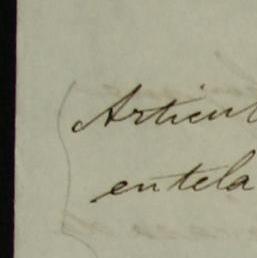 Articul
entela